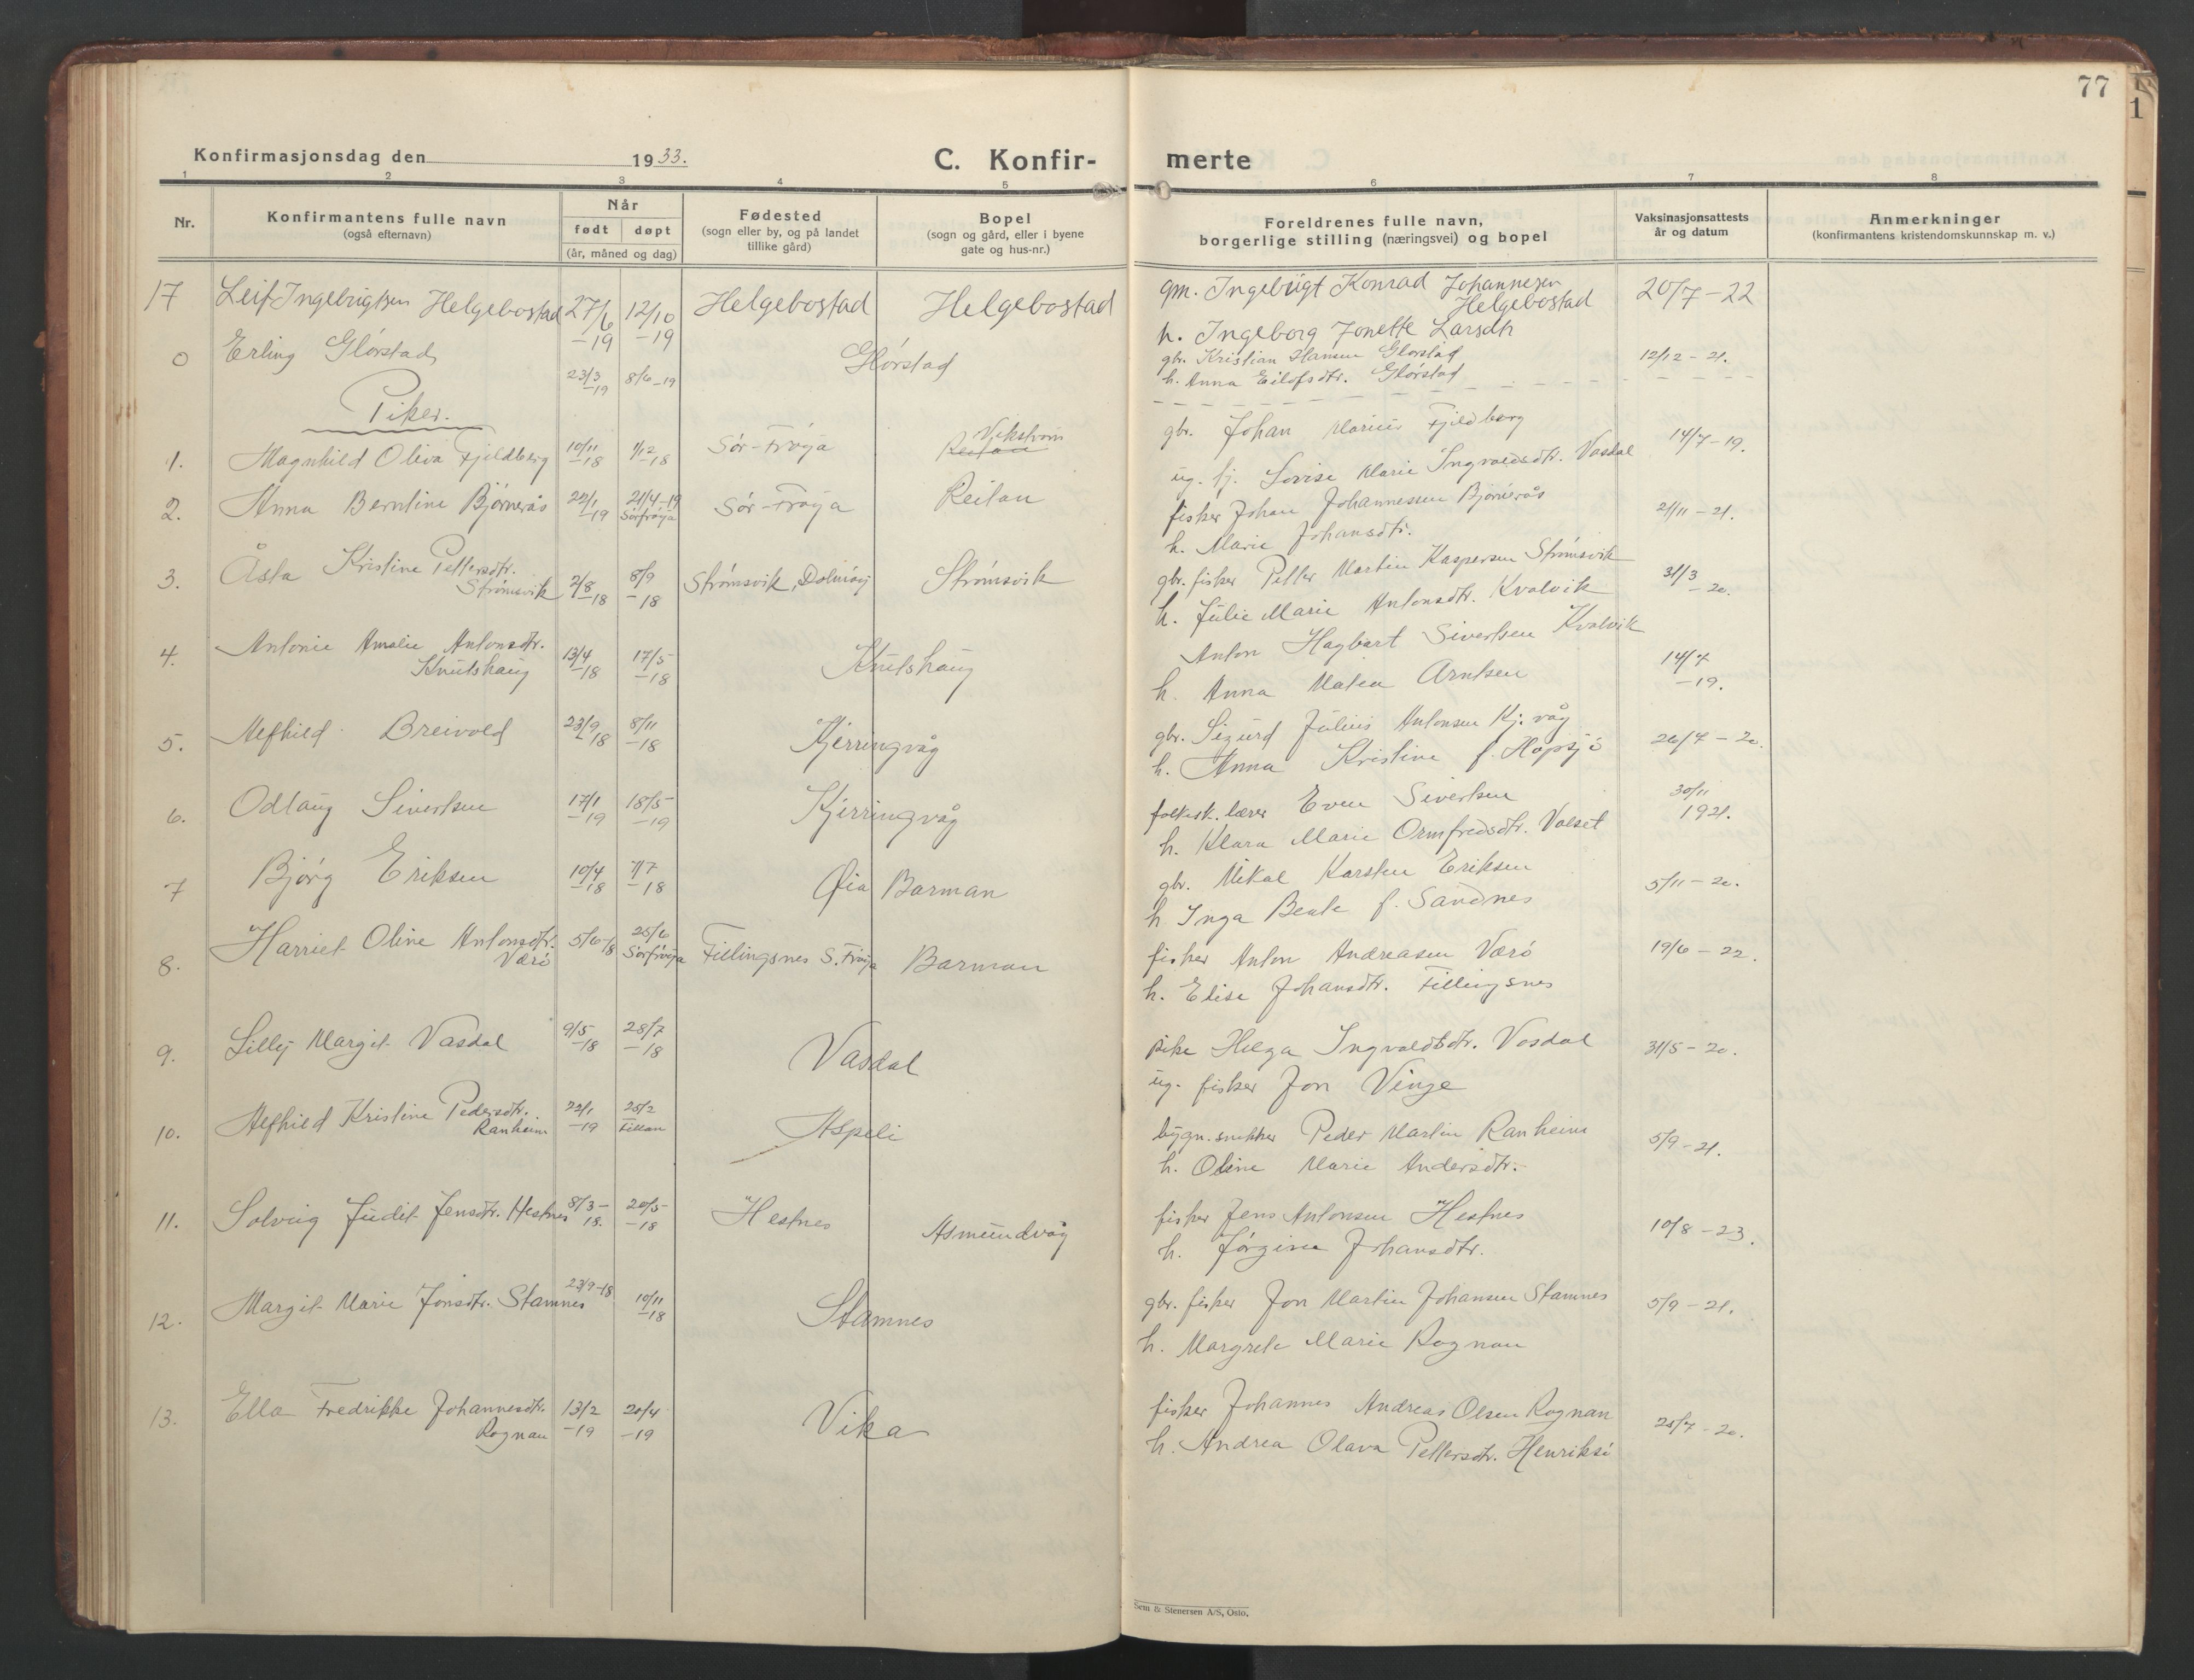 77
1
Konfirmasjonsdag den 1933.
C. Konfir- merte
1 2 3 4 5 6 7 8
Nr.
Konfirmantens fulle navn
(også efternavn)
Når
født døpt
(år, måned og dag)
Fødested
(sogn eller by, og på landet
tillike gård)
Bopel
(sogn og gård, eller i byene
gate og hus-nr.)
Foreldrenes fulle navn,
borgerlige stilling (næringsvei) og bopel
Vaksinasjonsattests
år og datum
Anmerkninger
(konfirmantens kristendomskunnskap m. v.)
17 Leif Ingebrigtsen Helgebostad 27/6 -19 12/10 -19 Helgebostad Helgebostad
gm. Ingebrigt Konrad Johannesen
Helgebostad
h. Ingeborg Jonette Larsdtr
20/7-22
0 Erling Glørstad 23/3 -19 8/6-19 Glørstad
gbr. Kristian Hansen Glørstad
h. Anna Eilofsdtr. Glørstad
12/12 - 21.
Piker.
1. Magnhild Oliva Fjeldberg 10/11 -18 1/12 -18 Sør-Frøya Reitan
gbr. Johan Marius Fjeldberg
ug. fj. Lovise Marie Ingvaldsdtr. Vasdal
14/7-19.
2. Anna Berntine Bjørnerås 22/1 -19 21/4-19 Sørfrøya Sør-Frøya Reitan
fisker Johan Johannessen Bjørnerås
h. Marie Johansdtr.
21/11 - 21.
3. Åsta Kristine Pettersdtr.
Strømsvik 2/8 -18 8/9 -18 Strømsvik, Dolmøy Strømsvik
gbr. fisker Petter Martin Kaspersen Strømsvik
h. Julie Marie Antonsdtr. Kvalvik
31/3 -20.
4. Antonie Amalie Antonsdtr.
Knutshaug 13/4 -18 17/5 -18 Knutshaug
Anton Hagbart Sivertsen Kvalvik
h. Anna Matea Arntsen
14/7 -19.
5. Alfhild Breivold 23/9 -18 8/11 -18 Kjerringvåg
gbr. Sigurd Julius Antonsen Kj. våg
h. Anna Kristine f. Hopsjø
26/7 - 20.
6. Odlaug Sivertsen 17/1 -19 18/5 -19 Kjerringvåg
folkesk. lærer Even Sivertsen
h. Klara Marie Ormfredsdtr. Valset
30/11
1921.
7 Bjørg Eriksen 10/4 -18 7/7 -18 Øia Barman
gbr. Mikal Karsten Eriksen
h. Inga Beate f. Sandnes
5/11 - 20.
8. Harriet Oline Antonsdtr.
Værø 5/6-18 25/6 Sørfrøya Fillingsnes S. Frøya Barman
fisker Anton Andreasen Værø
h. Elise Johansdtr. Fillingsnes
19/6 - 22.
9. Lilly Margit Vasdal 9/5 -18 28/7 -18 Vasdal
pike Helga Ingvaldsdtr. Vasdal
ug. fisker Jon Vinge
31/5 - 20.
10. Alfhild Kristine Pedersdtr.
Ranheim 22/1 -19 25/2 Fillan Aspeli
bygn. snekker Peder Martin Ranheim
h. Oline Marie Andersdtr.
5/9 - 21.
11. Solveig Judit Jensdtr. Hestnes 8/3- 18. 20/5 -18 Hestnes Asmundvåg
fisker Jens Antonsen Hestnes
h. Jørgine Johansdtr.
10/8 - 23.
12. Margit Marie Jonsdtr. Stamnes 23/9-18 10/11 -18 Stamnes
gbr. fisker Jon Martin Johansen Stamnes
h. Margrete Marie Rognan
5/9 - 21.
13. Ella Fredrikke Johannesdtr.
Rognan 13/2 -19 20/4 -19 Vika
fisker Johannes Andreas Olsen Rognan
h. Andrea Olava Pettersdtr. Henriksø
20/7 - 20.
Sem & Stenersen A/S, Oslo.